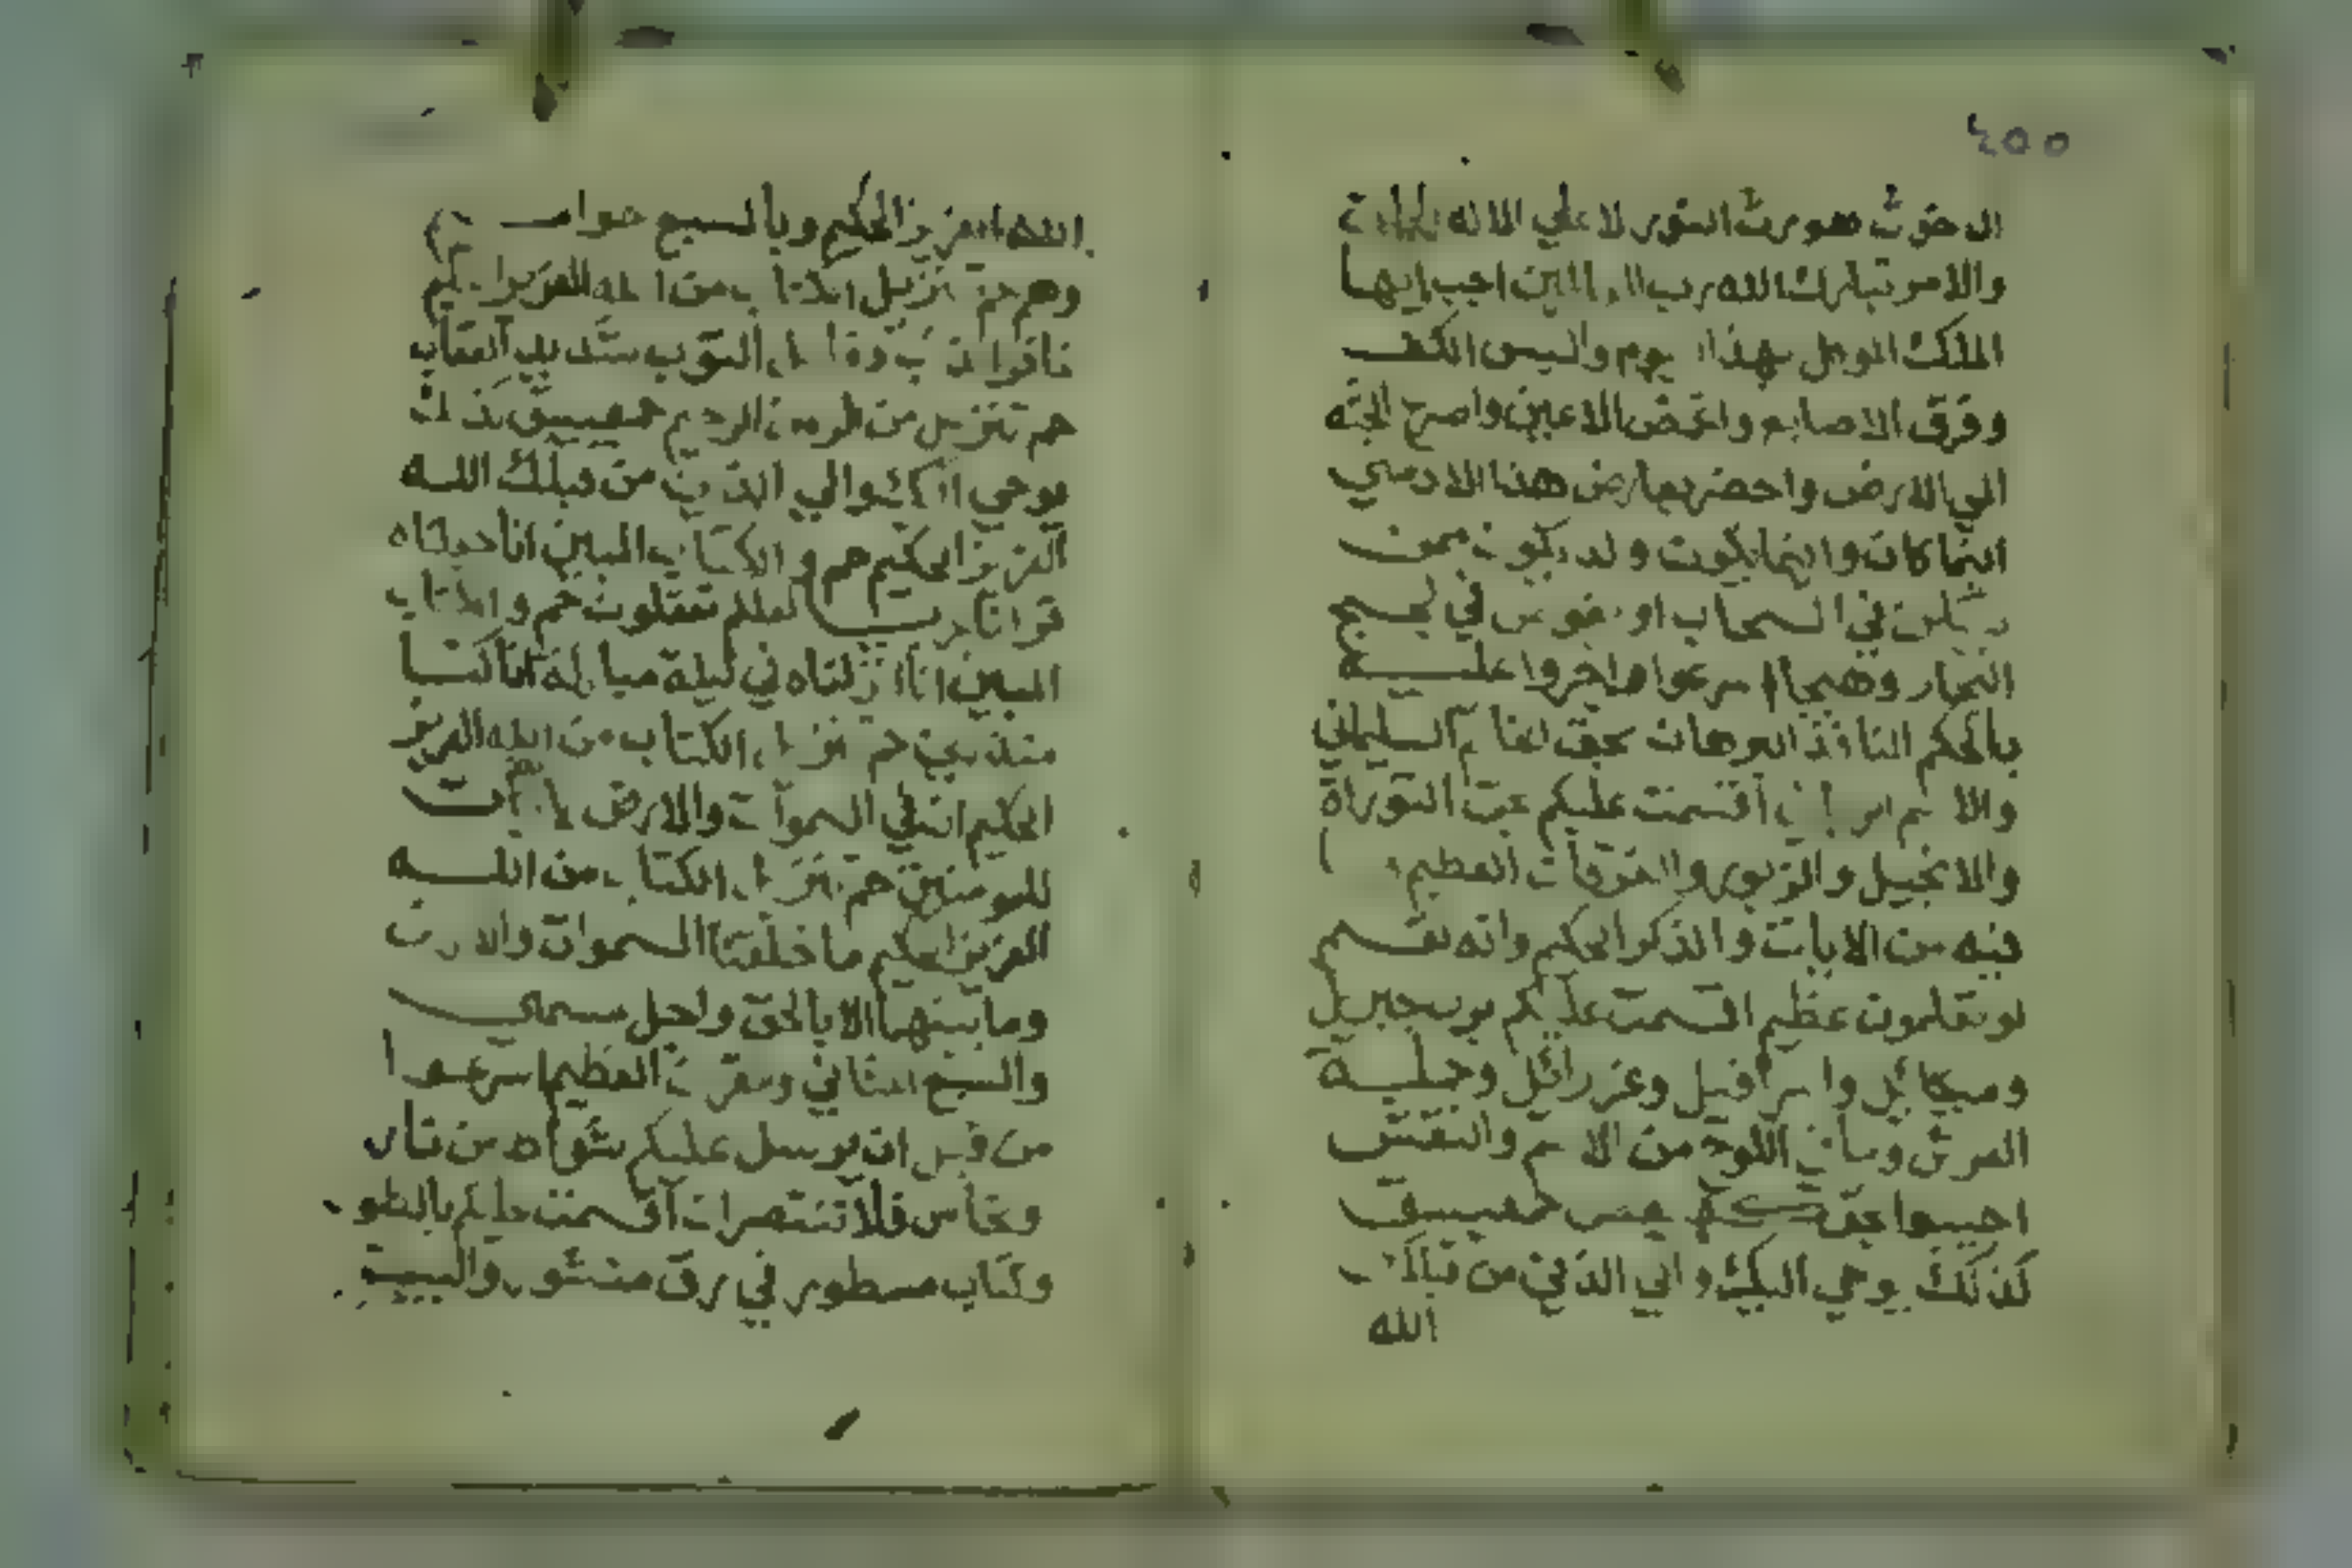 ٤٥٥
نور النور لا علي الا له
والامر تبارك الله رب العالمين اجب ايها
الملك الموكل بهذا اليوم والبس الكف
وفرق الاصابع واغمض الاعين واصرع الجثه
الي الارض واحضر بعارض هذا الادمي
اينما كان واينما يكون ولد يكون ممن
في السحاب او يغوص في لجج
البحار وهيجا اسرعوا وانجروا عليه
بالحكم النافذ البرهان بحق لخاتم السليماني
والا اقسمت عليكم بحق التوراة
والانجيل والزبور والفرقان العظيم
فيه من الايات والذكر الحكيم وانه لقسم
لو تعلمون عظيم اقسمت عليكم برب جبريل
وميكائيل واسرافيل وعزرائيل وحملة
العرش وما في اللوح من الاسم والنقش
اجيبوا بحق كهيعص حمعسق
كذلك يوحي اليك والي الذين من قبلك
الله
الله العزيز الحكيم وبالسبع حواميم
وهم حم تنزيل الكتاب من الله العزيز العليم
غافر الذنب وقابل التوب شديد العقاب
حم تنزيل من الرحمن الرحيم حمعسق كذلك
يوحي اليك والي الذين من قبلك الله
العزيز الحكيم حم والكتاب المبين انا جعلناه
قرانا عربيا لعلكم تعقلون حم والكتاب
المبين انا انزلناه في ليلة مباركة انا كنا
منذرين حم تنزيل الكتاب من الله العزيز
الحكيم ان في السموات والارض لايات
للمومنين حم تنزيل الكتاب من الله
العزيز الحكيم ما خلقنا السموات والارض
وما بينهما الا بالحق واجل مسمي
والسبع المثاني والقران العظيم اسرعوا
من قبل ان يرسل عليكم شواه من نار
ونحاس فلا تنتصران اقسمت عليكم بالطو
وكتاب مسطور في رق منشور والبيت